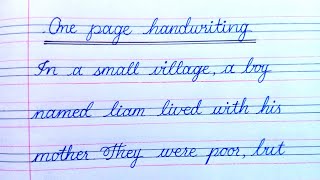 One page handwriting
In a small village, a boy
named liam lived with his
mother They were poor, but